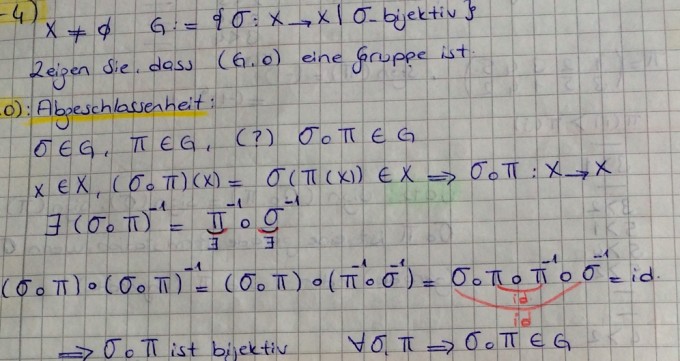 -4) X ≠ ∅ G := {σ: X → X | σ-bijektiv}
Zeigen Sie, dass (G, o) eine Gruppe ist.
0): Abgeschlassenheit:
σ ∈ G, π ∈ G, (?) σ∘π ∈ G
x ∈ X, (σ∘π)(x) = σ(π(x)) ∈ X ⇒ σ∘π : X → X
∃ (σ∘π)⁻¹ = π⁻¹ ∘ σ⁻¹
∃ ∃
(σ∘π)∘(σ∘π)⁻¹ = (σ∘π)∘(π⁻¹∘σ⁻¹) = σ∘π∘π⁻¹∘σ⁻¹ = id.
id
id
⇒ σ∘π ist bijektiv ∀σ,π ⇒ σ∘π ∈ G